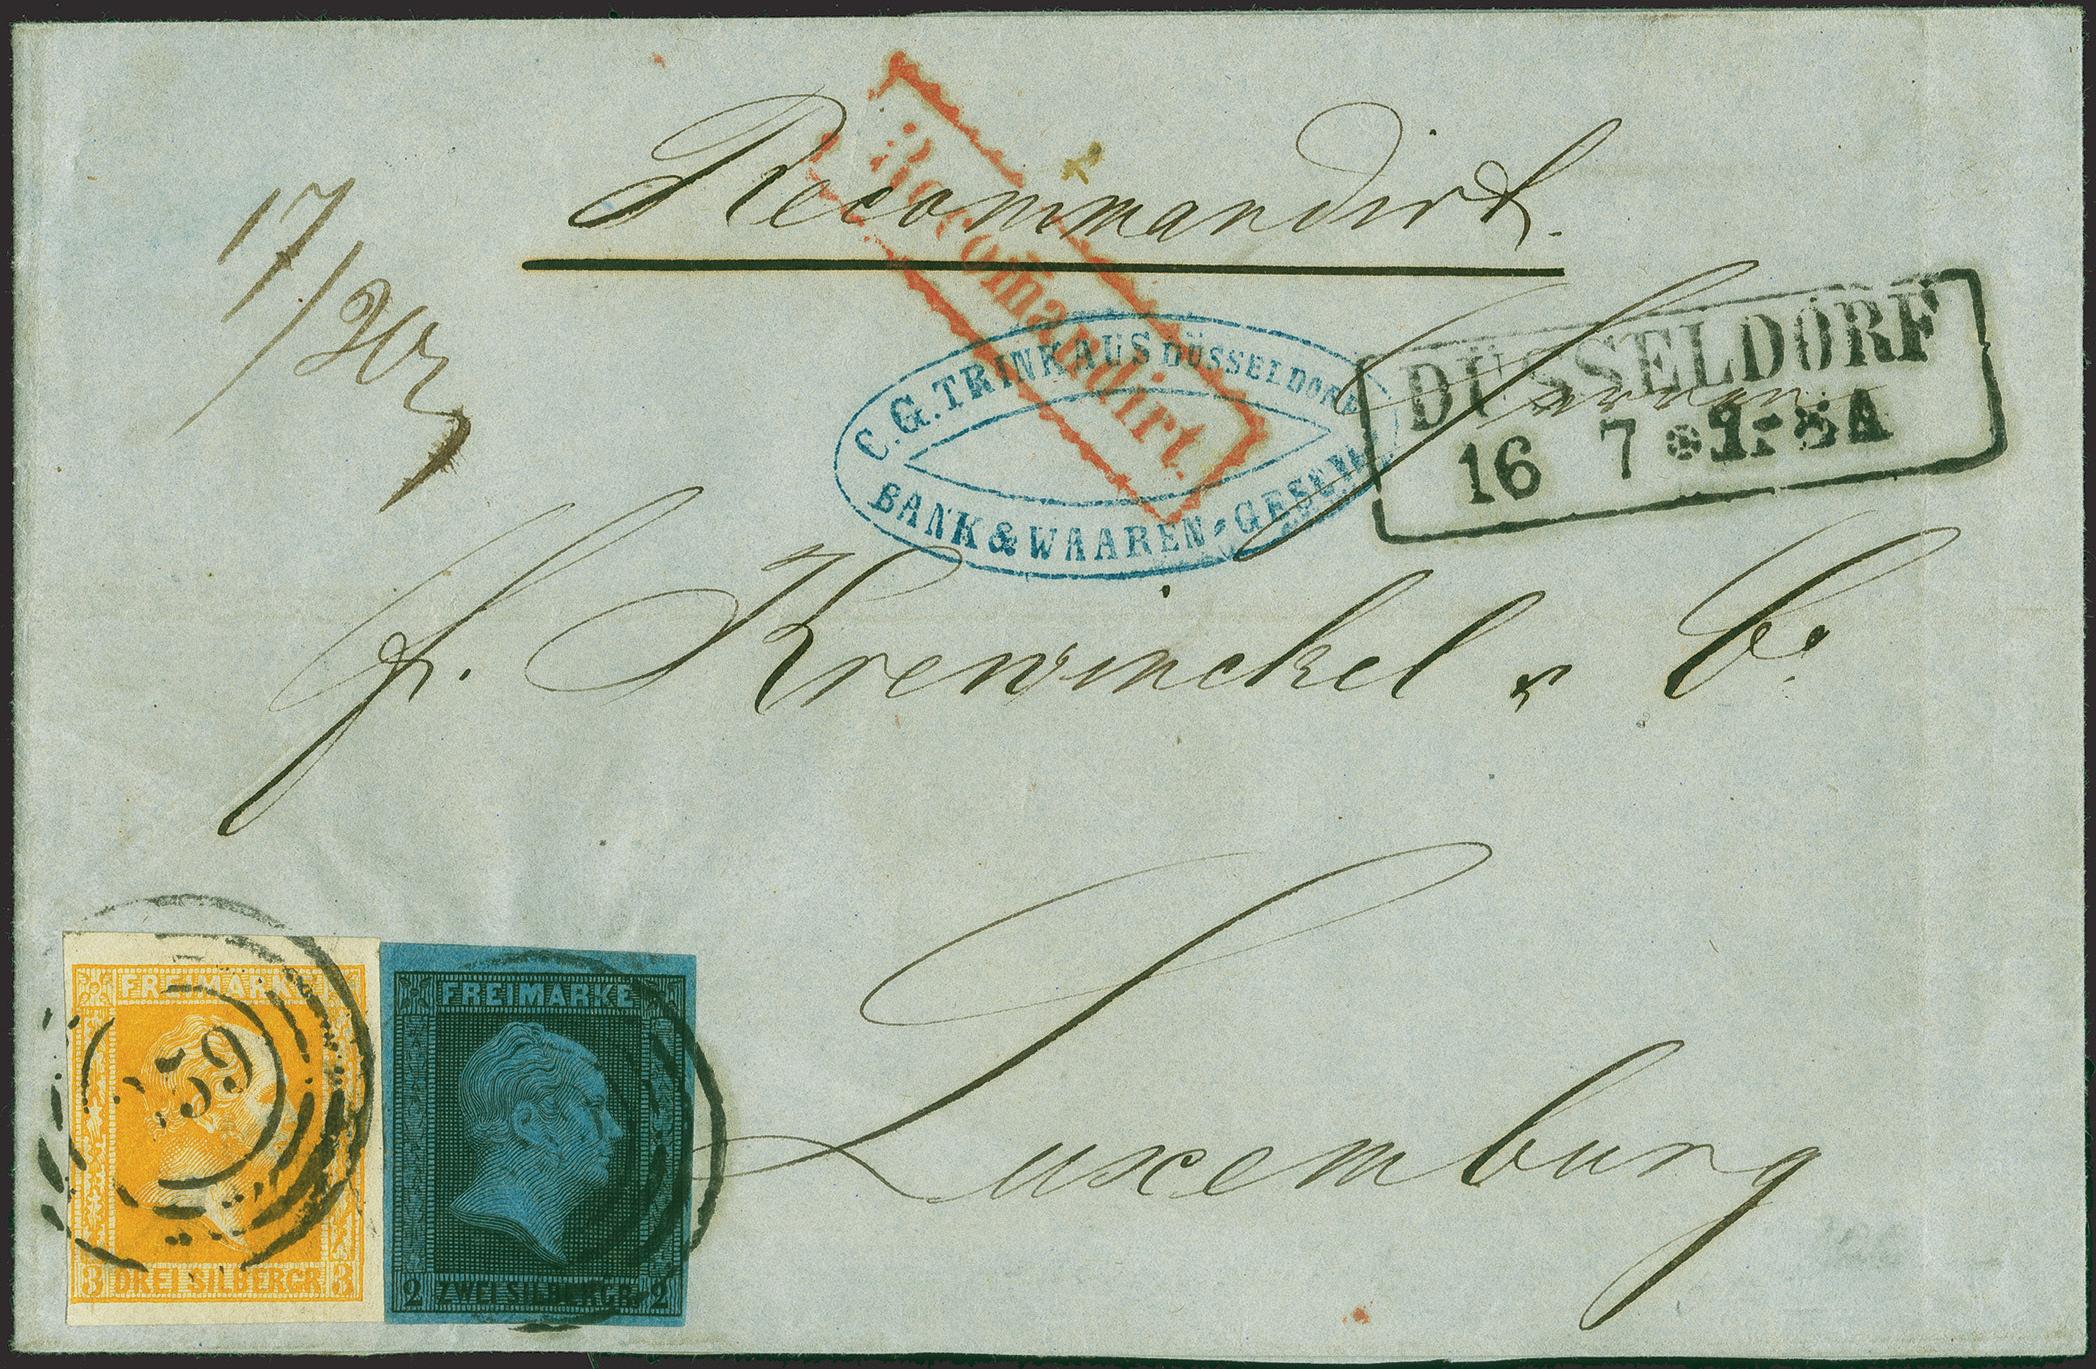 Recommandirt.
Recomandirt.
17/
C. G. TRINKAUS DÜSSELDORF
BANK & WAAREN-GESCH
DÜSSELDORF
16 7
Herren
f. Krewinckel & Co.
Luxemburg
FREIMARKE
3 DREI SILBERGR 3
FREIMARKE
2 ZWEI SILBERGR. 2